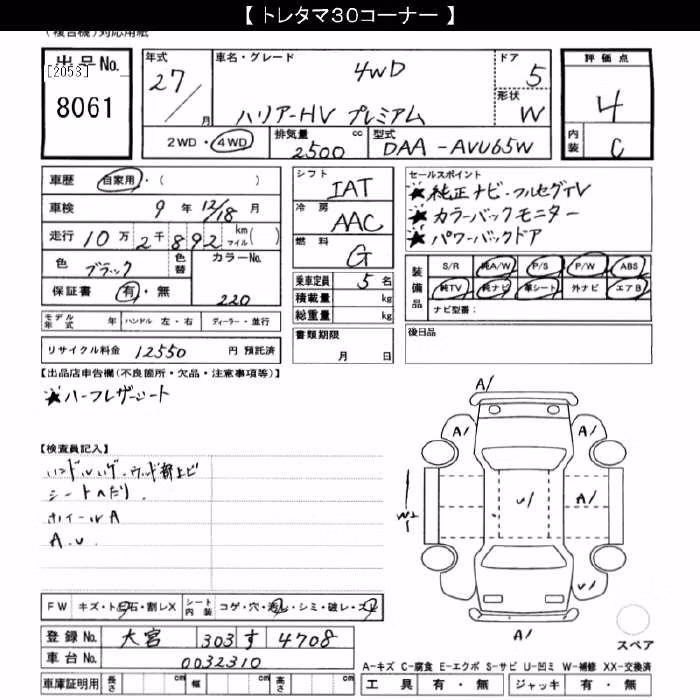 【 トレタマ30コーナー 】
(複合機)対応用紙
出品No.
[2053]
8061
年式
27/
月
車名・グレード
4WD
ハリアーHV プレミアム
ドア
5
形状
W
評価点
4
内装
C
2WD・4WD
排気量
2500
cc
型式
DAA-AVU65W
車歴 自家用・( )
車検 9年 12/18月
走行 10万2千892 km マイル( )
色 ブラック
色替
カラーNo.
220
保証書 有・無
モデル年式 年
ハンドル 左・右
ディーラー・並行
リサイクル料金 12550 円 預託済
シフト
IAT
冷房
AAC
燃料
G
乗車定員 5名
積載量 kg
総重量 kg
書類期限
月 日
セールスポイント
★純正ナビ・フルセグTV
★カラーバックモニター
★パワーバックドア
装備品
S/R 純A/W P/S P/W ABS
純TV 純ナビ 革シート 外ナビ エアB
ナビ型番:
後日品
【出品店申告欄(不良箇所・欠品・注意事項等)】
★ハーフレザーシート
【検査員記入】
シートヘタリ.
ホイールA
A.U.
A1
A1
A1
U1
A1
W2
U1
A1
スペア
FW キズ・ト飛石・割レX
シート内装 コゲ・穴・汚レ・シミ・破レ・スレ
登録No. 大宮 303 す 4708
車台No. 0032310
車庫証明用 長さ cm 幅 cm 高さ cm
A-キズ C-腐食 E-エクボ S-サビ U-凹ミ W-補修 XX-交換済
工具 有・無 ジャッキ 有・無